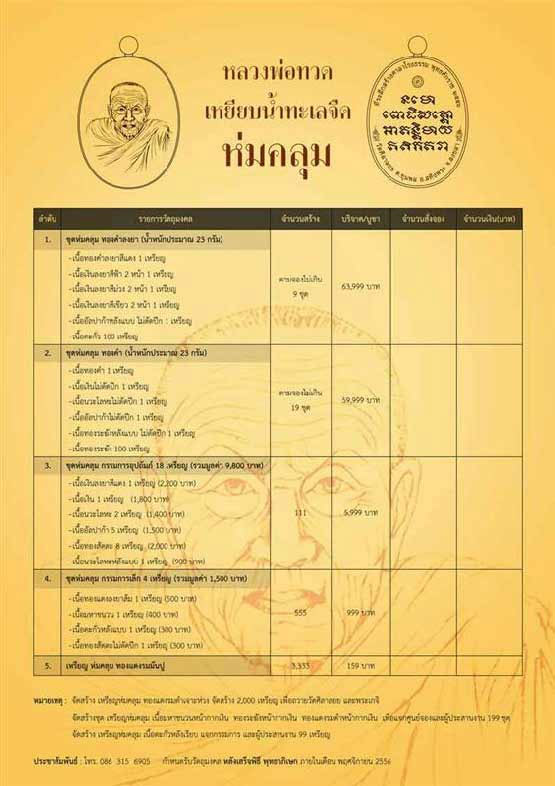 หลวงพ่อทวด
เหยียบน้ำทะเลจืด
ห่มคลุม
นโม
โพธิสตฺโต
อาคนฺติมาย
อิติภควา
ลำดับ รายการวัตถุมงคล จำนวนสร้าง บริจาค/บูชา จำนวนสั่งจอง จำนวนเงิน(บาท)
1. ชุดห่มคลุม ทองคำลงยา (น้ำหนักประมาณ 23 กรัม)
-เนื้อทองคำลงยาสีแดง 1 เหรียญ
-เนื้อเงินลงยาสีฟ้า 2 หน้า 1 เหรียญ
-เนื้อเงินลงยาสีม่วง 2 หน้า 1 เหรียญ
-เนื้อเงินลงยาสีเขียว 2 หน้า 1 เหรียญ
-เนื้ออัลปาก้าหลังแบบ ไม่ตัดปีก 1 เหรียญ
-เนื้อตะกั่ว 100 เหรียญ
ตามจองไม่เกิน
9 ชุด
63,999 บาท
2. ชุดห่มคลุม ทองคำ (น้ำหนักประมาณ 23 กรัม)
-เนื้อทองคำ 1 เหรียญ
-เนื้อเงินไม่ตัดปีก 1 เหรียญ
-เนื้อนวะโลหะไม่ตัดปีก 1 เหรียญ
-เนื้ออัลปาก้าไม่ตัดปีก 1 เหรียญ
-เนื้อทองระฆังหลังแบบ ไม่ตัดปีก 1 เหรียญ
-เนื้อทองระฆัง 100 เหรียญ
ตามจองไม่เกิน
19 ชุด
59,999 บาท
3. ชุดห่มคลุม กรรมการอุปถัมภ์ 18 เหรียญ (รวมมูลค่า 9,800 บาท)
-เนื้อเงินลงยาสีแดง 1 เหรียญ (2,200 บาท)
-เนื้อเงิน 1 เหรียญ (1,800 บาท)
-เนื้อนวะโลหะ 2 เหรียญ (1,400 บาท)
-เนื้ออัลปาก้า 5 เหรียญ (1,500 บาท)
-เนื้อทองสัตตะ 8 เหรียญ (2,000 บาท)
-เนื้อนวะโลหะหลังแบบ 1 เหรียญ (900 บาท)
111
5,999 บาท
4. ชุดห่มคลุม กรรมการเล็ก 4 เหรียญ (รวมมูลค่า 1,500 บาท)
-เนื้อทองแดงลงยาส้ม 1 เหรียญ (500 บาท)
-เนื้อมหาชนวน 1 เหรียญ (400 บาท)
-เนื้อตะกั่วหลังแบบ 1 เหรียญ (300 บาท)
-เนื้อทองสัตตะไม่ตัดปีก 1 เหรียญ (300 บาท)
555
999 บาท
5. เหรียญ ห่มคลุม ทองแดงรมมันปู
3,333
159 บาท
หมายเหตุ : จัดสร้าง เหรียญห่มคลุม ทองแดงรมดำเจาะห่วง จัดสร้าง 2,000 เหรียญ เพื่อถวายวัดศิลาลอย และพระเกจิ
จัดสร้างชุด เหรียญห่มคลุม เนื้อมหาชนวนหน้ากากเงิน ทองระฆังหน้ากากเงิน ทองแดงรมดำหน้ากากเงิน เพื่อแจกศูนย์จองและผู้ประสานงาน 199 ชุด
จัดสร้าง เหรียญห่มคลุม เนื้อตะกั่วหลังเรียบ แจกกรรมการ และผู้ประสานงาน 99 เหรียญ
ประชาสัมพันธ์ : โทร. 086 315 6905 กำหนดรับวัตถุมงคล หลังเสร็จพิธี พุทธาภิเษก ภายในเดือน พฤศจิกายน 2556